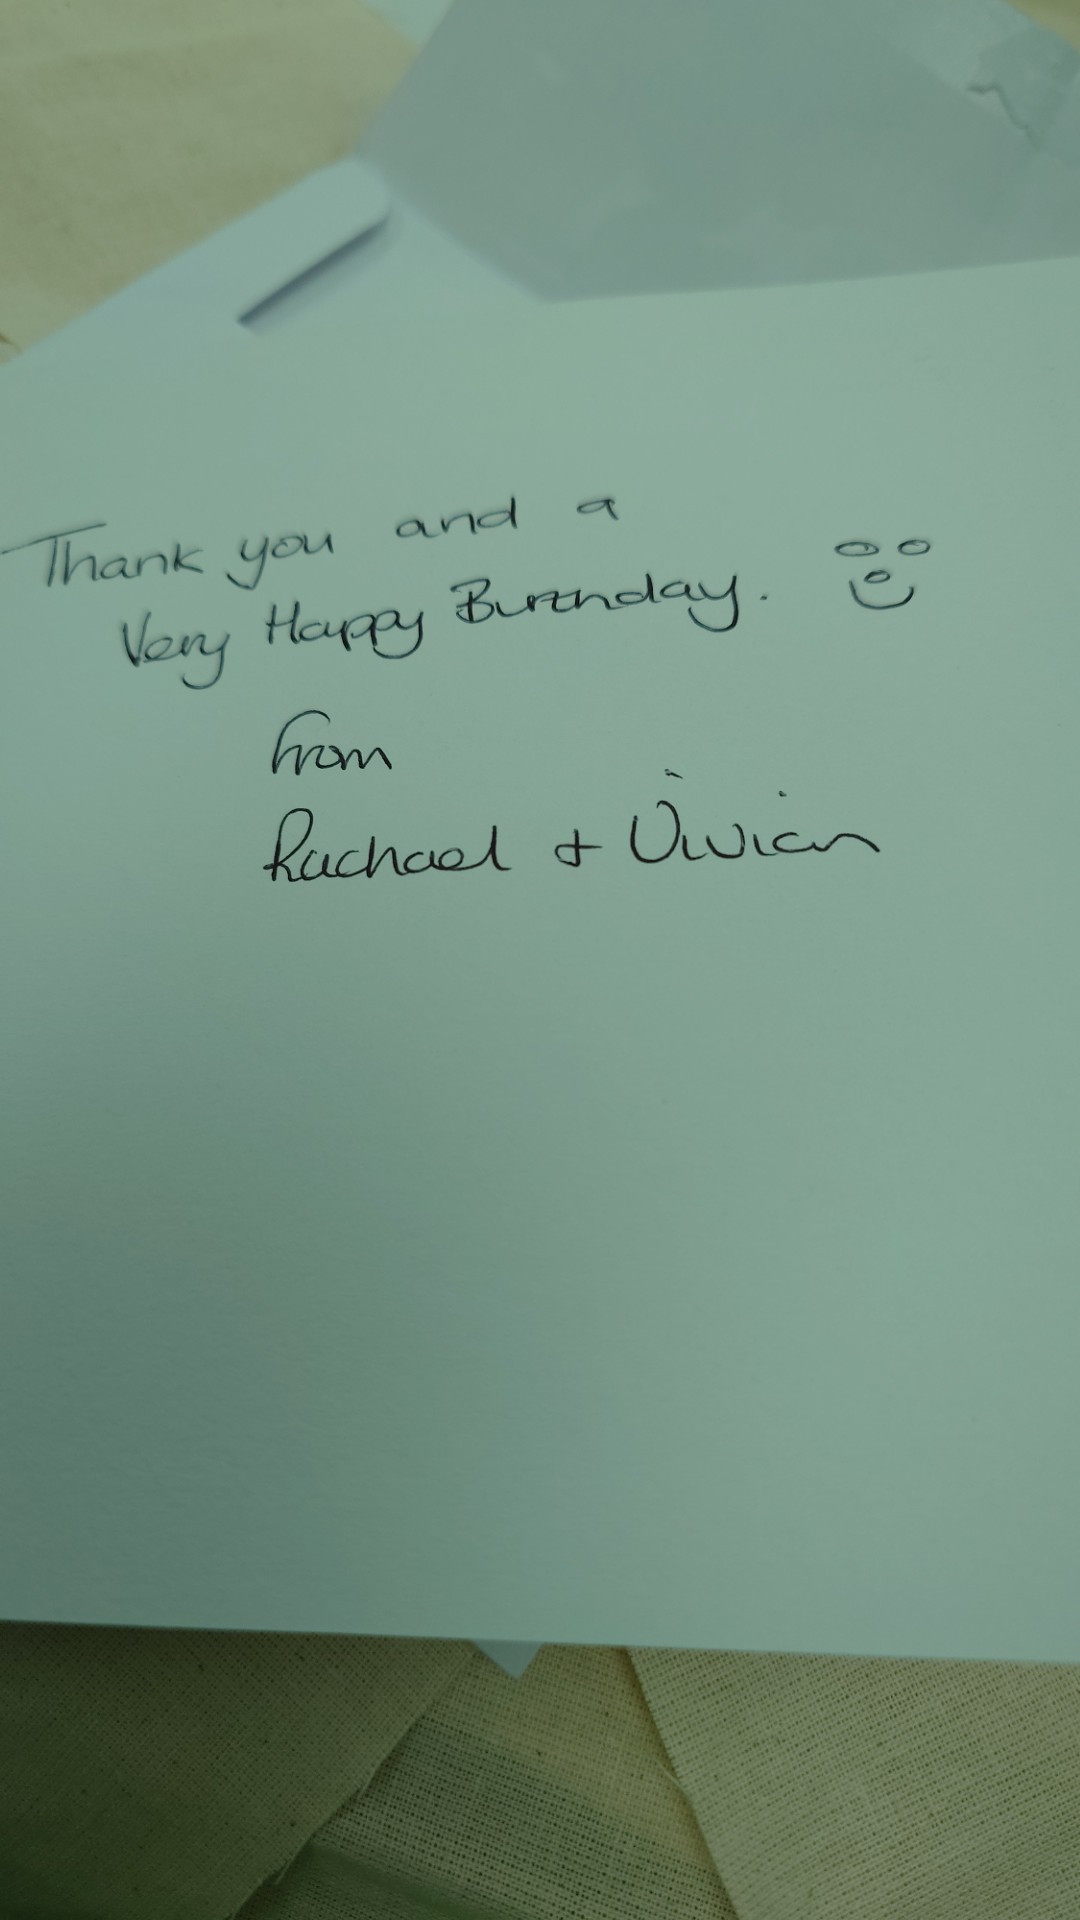 Thank you and a
Very Happy Birthday.
from
Rachael + Vivian